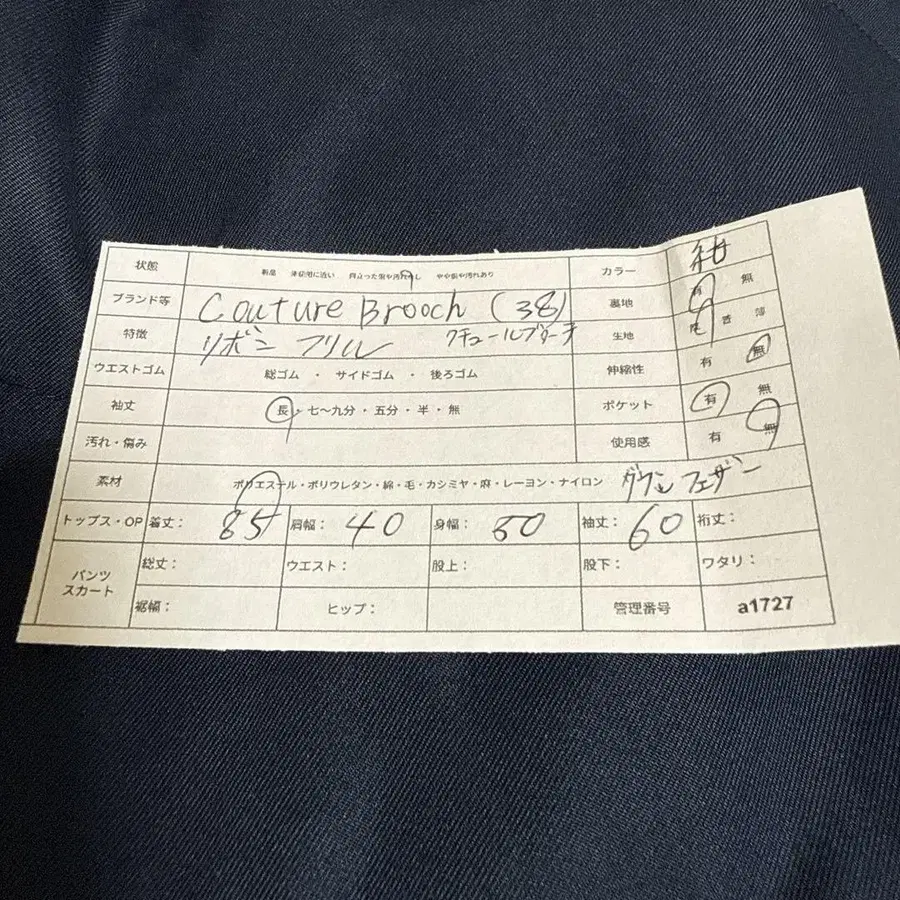 状態 新品 未使用に近い 目立った傷や汚れなし やや傷や汚れあり カラー 紺
ブランド等 Couture Brooch (38) 裏地 有 無
特徴 リボン フリル クチュールブローチ 生地 厚 普 薄
ウエストゴム 総ゴム ・ サイドゴム ・ 後ろゴム 伸縮性 有 無
袖丈 長・七〜九分・五分・半・無 ポケット 有 無
汚れ・傷み 使用感 有 無
素材 ポリエステル・ポリウレタン・綿・毛・カシミヤ・麻・レーヨン・ナイロン ダウン フェザー
トップス・OP 着丈: 85 肩幅: 40 身幅: 50 袖丈: 60 裄丈:
パンツ スカート 総丈: ウエスト: 股上: 股下: ワタリ:
裾幅: ヒップ: 管理番号 a1727